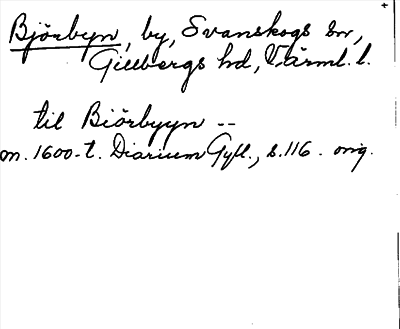 Björbyn, by, Svanskogs sn,
Gillbergs hd, Värml. l.
til Biörbyyn --
m. 1600-t. Diarium Gyll., s. 116. orig.